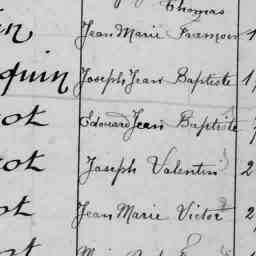 Thomas
in Jean Marie François 1
quin Joseph Jean Baptiste 1
cot Edouard Jean Baptiste
cot Joseph Valentin 2
ot Jean Marie Victor 2